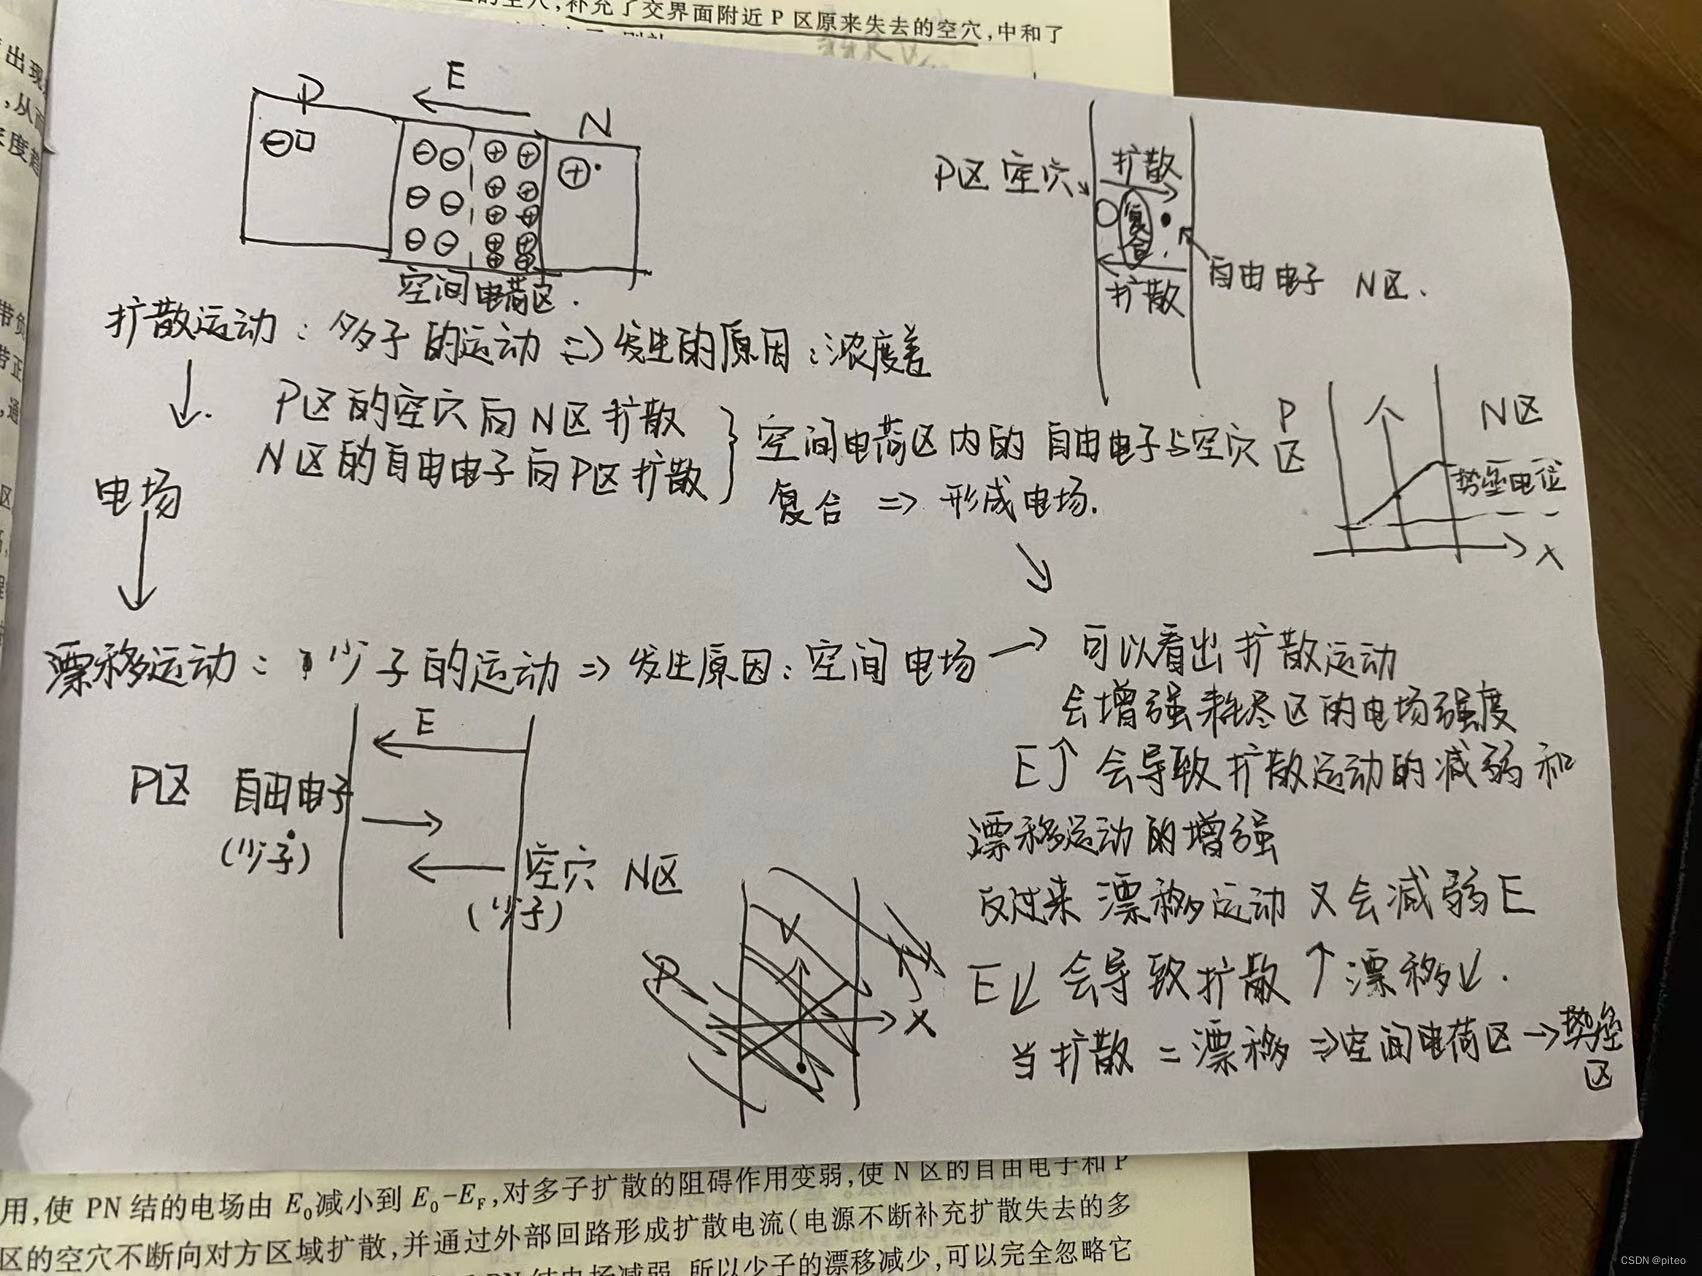 的空穴,补充了交界面附近 P 区原来失去的空穴,中和了
出现
,从而
带负
带正
P
E
N
空间电荷区.
P区 空穴
扩散
复合
扩散
自由电子 N区.
扩散运动：多子的运动 => 发生的原因：浓度差
P区的空穴向N区扩散
N区的自由电子向P区扩散
空间电荷区内的 自由电子与空穴
复合 => 形成电场.
P区
N区
势垒电位
X
电场
漂移运动：少子的运动 => 发生原因：空间电场 → 可以看出扩散运动
会增强耗尽区的电场强度
E↑ 会导致扩散运动的减弱和
漂移运动的增强
反过来 漂移运动又会减弱E
E↓ 会导致扩散↑漂移↓.
当扩散 = 漂移 => 空间电荷区 → 势垒区
E
P区 自由电子
(少子)
空穴 N区
(少子)
P
X
用,使 PN 结的电场由 E₀减小到 E₀-E_F,对多子扩散的阻碍作用变弱,使 N 区的自由电子和 P
区的空穴不断向对方区域扩散,并通过外部回路形成扩散电流(电源不断补充扩散失去的多
结电场减弱,所以少子的漂移减少,可以完全忽略它
CSDN @piteo